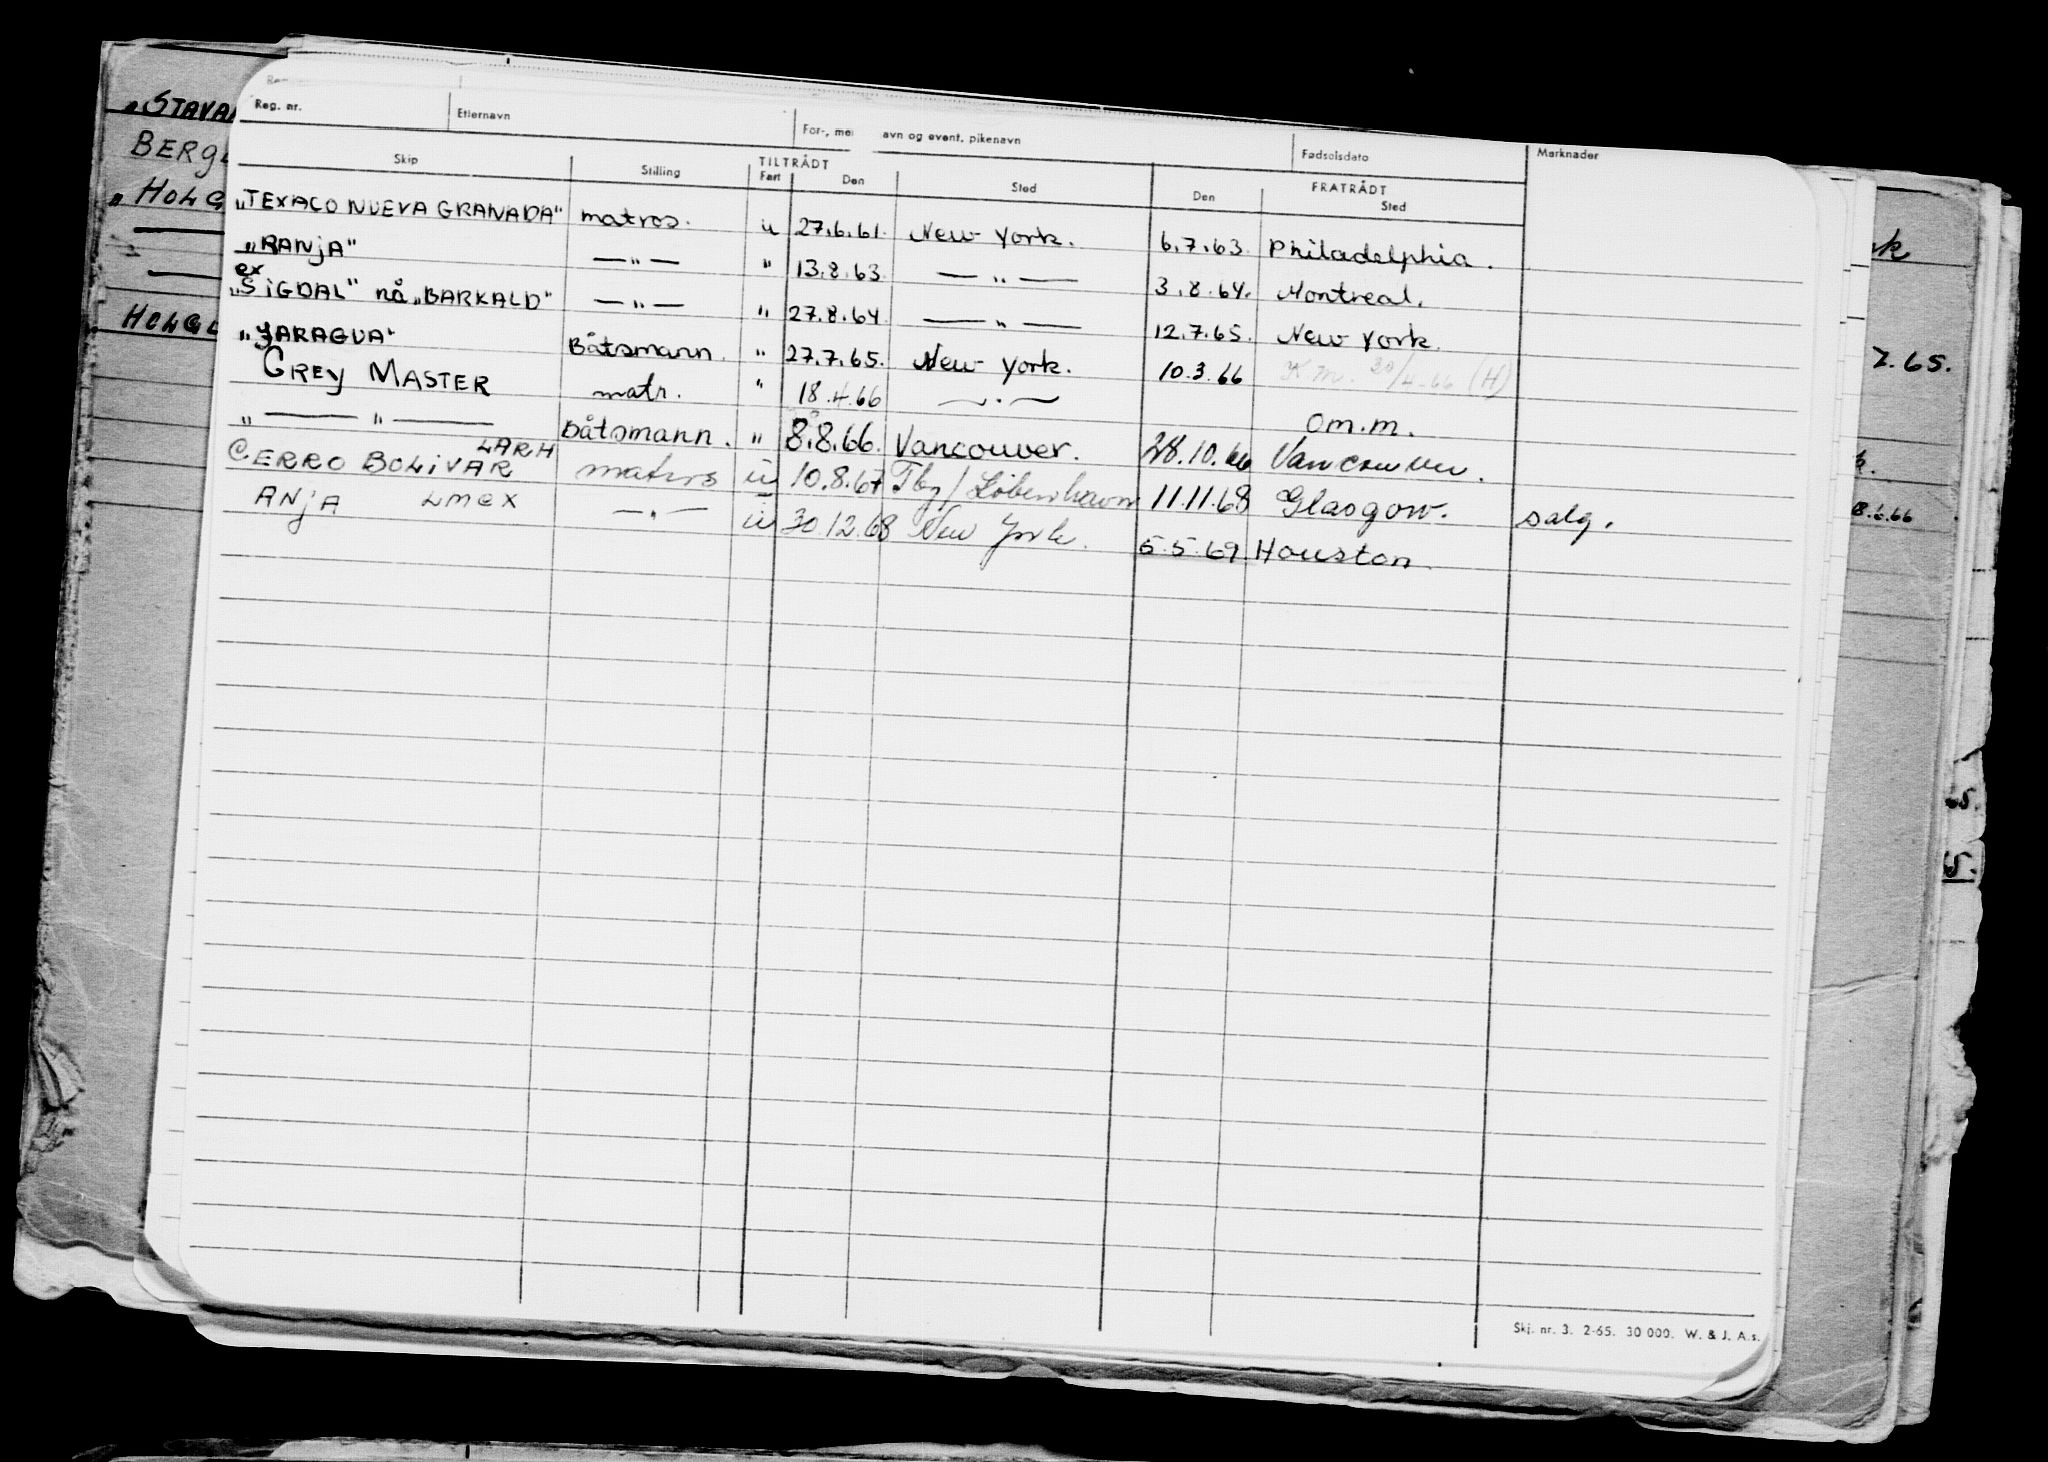 Reg. nr. Etternavn For-, me avn og event. pikenavn Fødselsdato Merknader
Skip Stilling TILTRÅDT Fart Den Sted FRATRÅDT Den Sted
"TEXACO NUEVA GRANADA" matros. u 27.6.61. New York. 6.7.63. Philadelphia.
"RANJA" — " — " 13.8.63. — " — 3.8.64. Montreal.
ex
"SIGDAL" nå "BARKALD" — " — " 27.8.64. — " — 12.7.65. New York.
"JARAGUA" Båtsmann. " 27.7.65. New York. 10.3.66 K.m. 30/4.66 (H)
GREY MASTER matr. " 18.4.66 — " — om.m.
" — " — Båtsmann. " 8.8.66. Vancouver. 28.10.66 Vancouver.
CERRO BOLIVAR LARH matros u 10.8.67 Tbg/ København 11.11.68 Glasgow. salg.
ANJA LMEX — " — u 30.12.68 New York. 5.5.69. Houston.
Skj. nr. 3. 2-65. 30 000. W. & J. A.s.
"STAVA
BERG
"HOLG
HOLG
7.65.
8.6.66